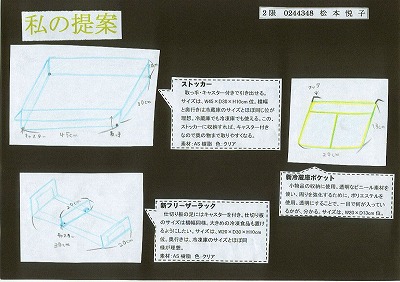 私の提案
2限 0244348 松本悦子
ストッカー
取っ手・キャスター付きで引き出せる。
サイズは、W45×D30×H10cm位。横幅
と奥行きは冷蔵庫のサイズとほぼ同じ位が
理想。冷蔵庫でも冷凍庫でも使える。この、
ストッカーに収納すれば、キャスター付き
なので奥の物まで取りやすくなる。
素材:AS樹脂 色:クリア
キャスター
45cm
取っ手
30cm
新フリーザーラック
仕切り板の足にはキャスターを付き。仕切り板
のサイズは横幅同様。大きめの冷凍食品も置け
るようにしたい。サイズは、W20×D30×H10cm
位。奥行きは、冷凍庫のサイズとほぼ同
様が理想。
素材:AS樹脂 色:クリア
20cm
キャスター
30cm
20cm
フック
13cm
20cm
新冷蔵庫ポケット
小物品の収納に使用。透明なビニール素材を
使い、周りを強化するために、ポリエステルを
使用。透明にすることで、一目で何が入ってい
るかが、分かる。サイズは、W20×D13cm位。